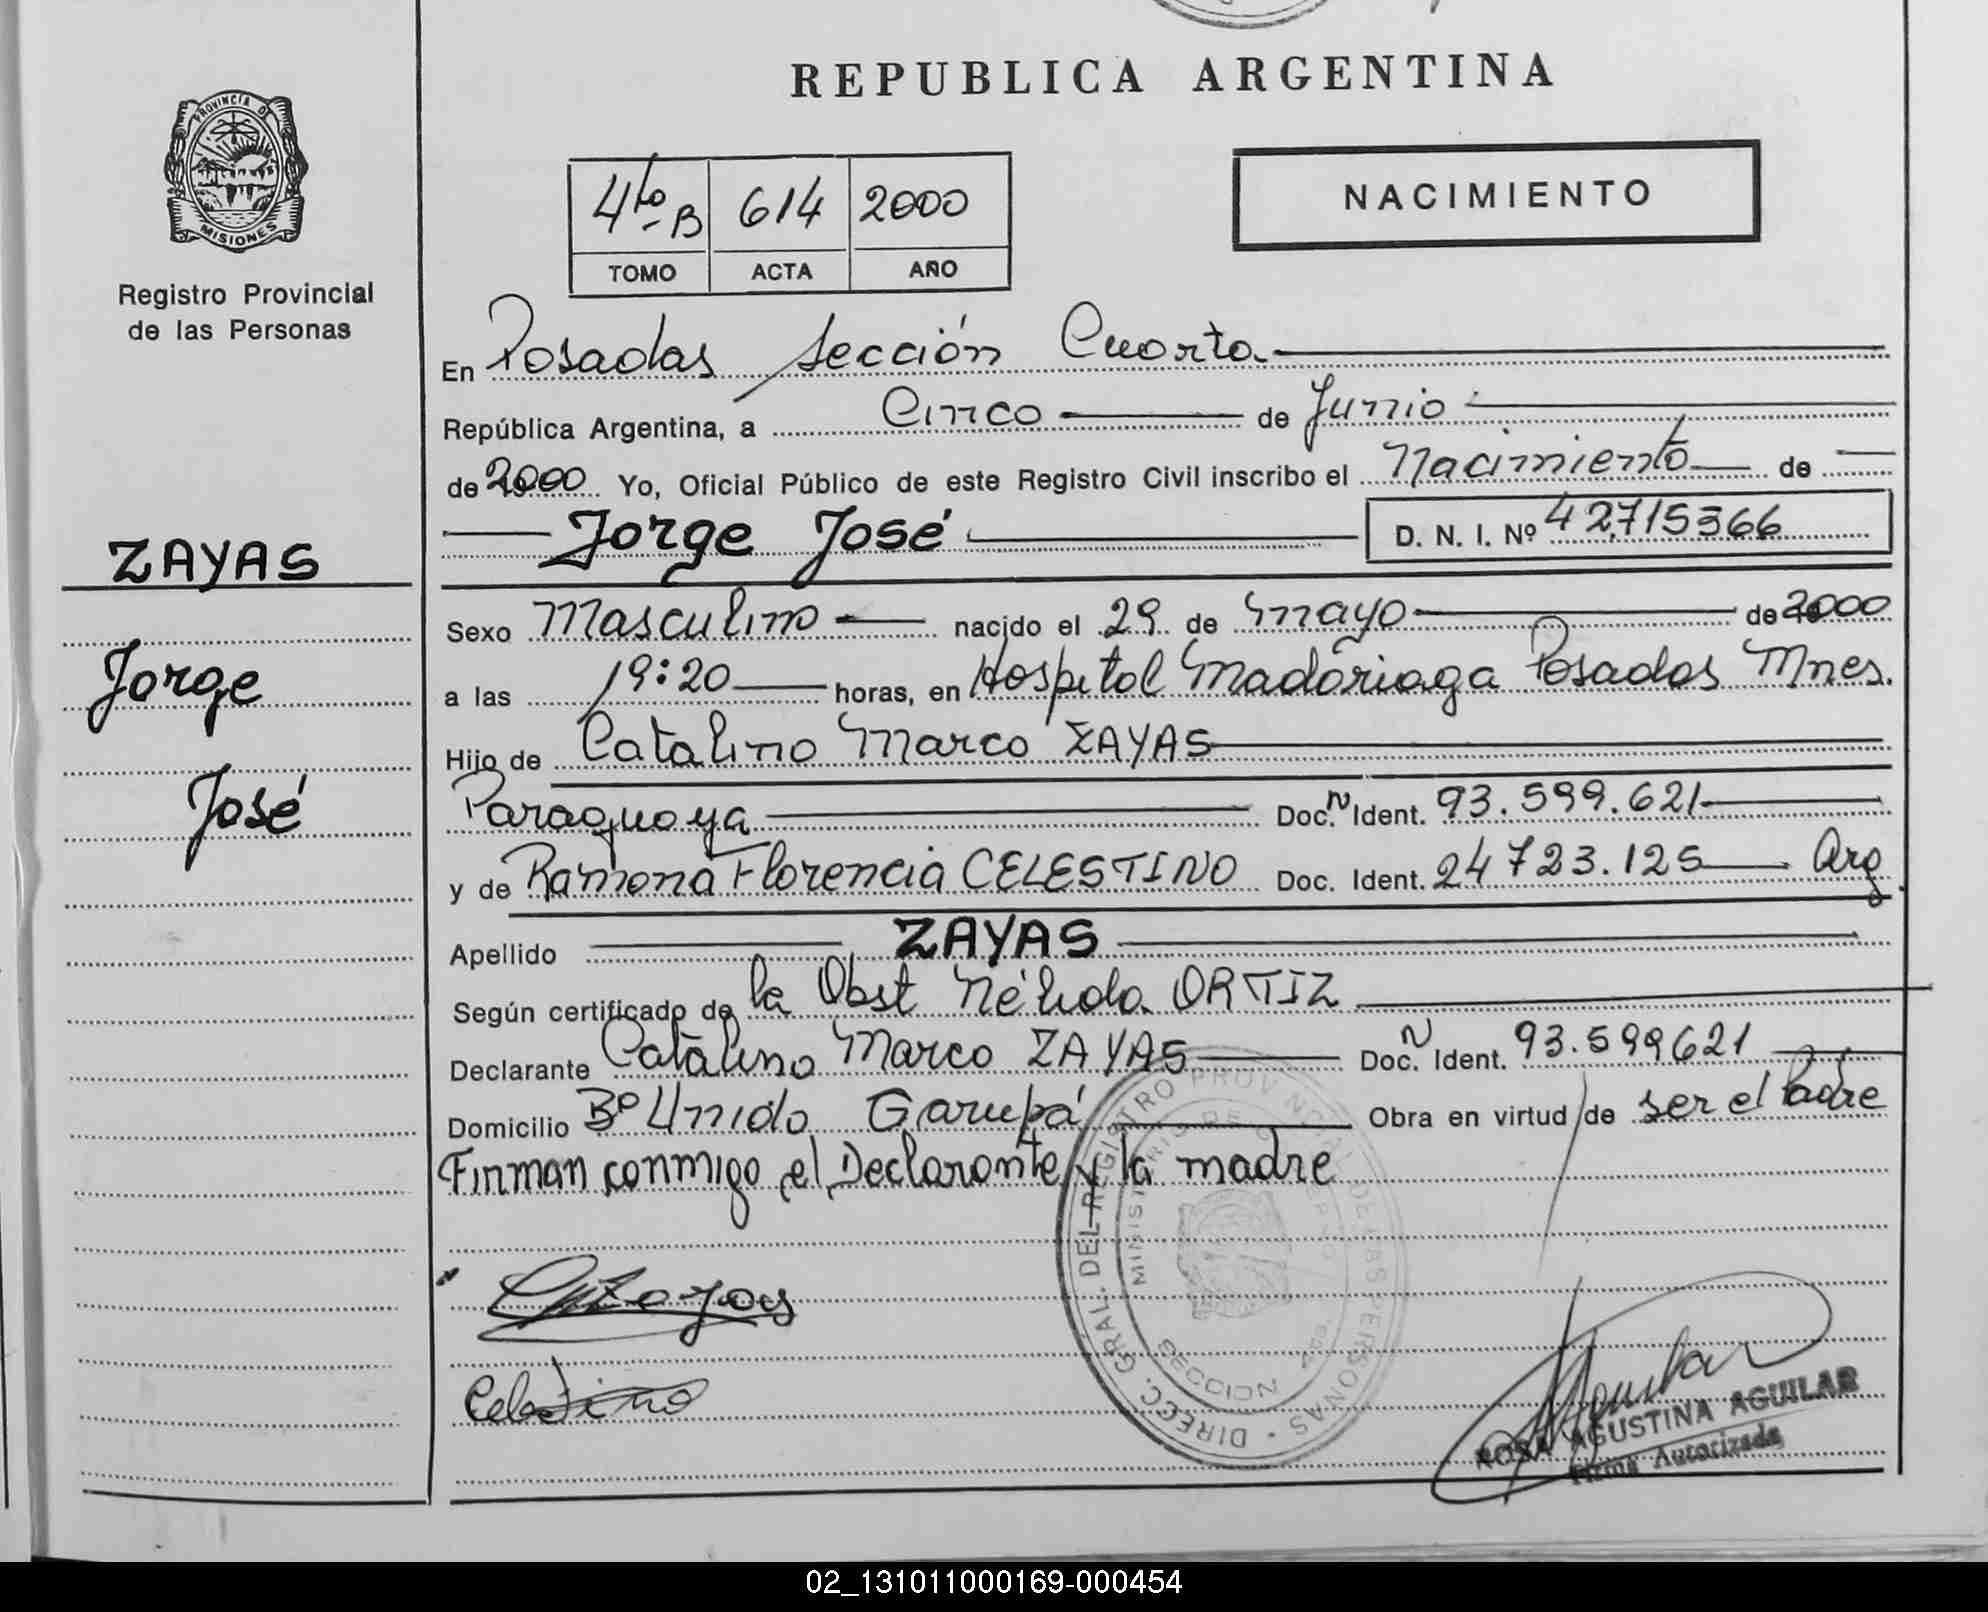 REPUBLICA ARGENTINA
PROVINCIA DE
MISIONES
Registro Provincial
de las Personas
NACIMIENTO
4to - B 614 2000
TOMO ACTA AÑO
En Posadas Sección Cuarta
República Argentina, a Cinco de Junio
de 2000 Yo, Oficial Público de este Registro Civil inscribo el Nacimiento de
Jorge José D. N. I. Nº 42715366
ZAYAS
Jorge
José
Sexo Masculino nacido el 29 de Mayo de 2000
a las 19:20 horas, en Hospital Madariaga Posadas Mnes.
Hijo de Catalino Marco ZAYAS
Paraguaya Doc. N Ident. 93.599.621
y de Ramona Florencia CELESTINO Doc. Ident. 24723.125 Arg
Apellido ZAYAS
Según certificado de la Obst Nélida ORTIZ
Declarante Catalino Marco ZAYAS Doc. N Ident. 93.599621
Domicilio Bº Unido Garupá Obra en virtud de ser el Padre
Firman conmigo el Declarante y la madre
Zayas
Celestino
DIRECC. GRAL. DEL REGISTRO PROVINCIAL DE LAS PERSONAS
MINISTERIO DE GOBIERNO
SECCION 4ta.
Aguilar
ROSA AGUSTINA AGUILAR
Firma Autorizada
02_131011000169-000454